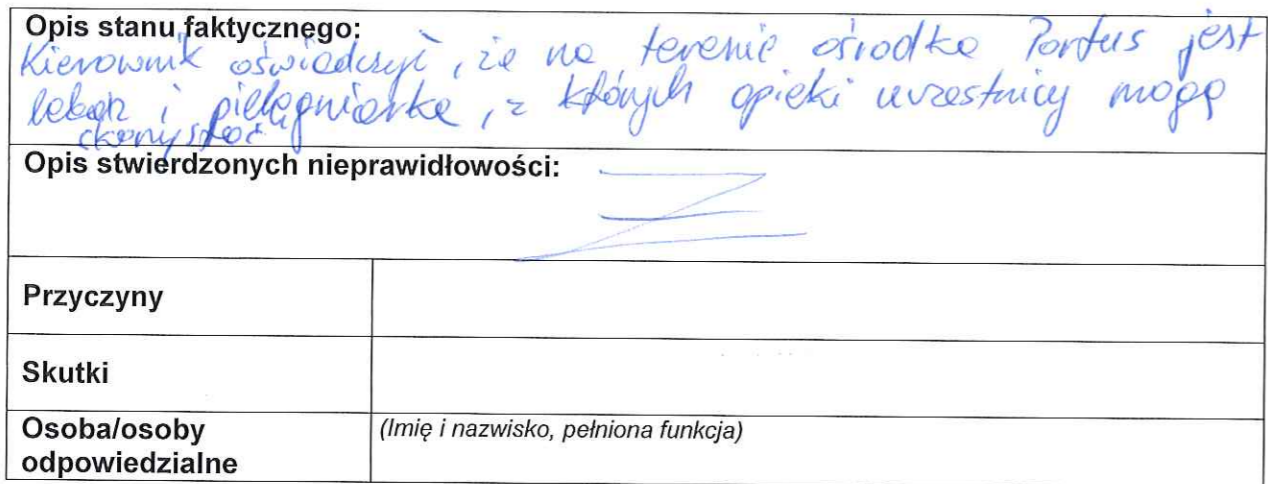 Opis stanu faktycznego:
Kierownik oświadczył, że na terenie ośrodka Portus jest
lekarz i pielęgniarka, z których opieki uczestnicy mogą
skorzystać
Opis stwierdzonych nieprawidłowości:
Przyczyny
Skutki
Osoba/osoby
odpowiedzialne
(Imię i nazwisko, pełniona funkcja)